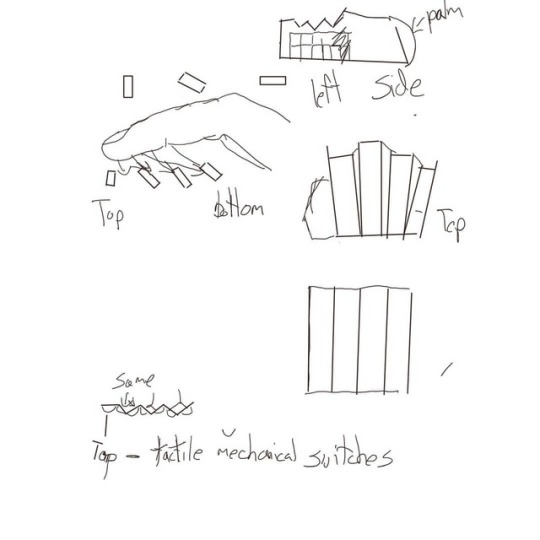 palm
left Side
Top
bottom
Top
Same
Top - tactile mechanical switches